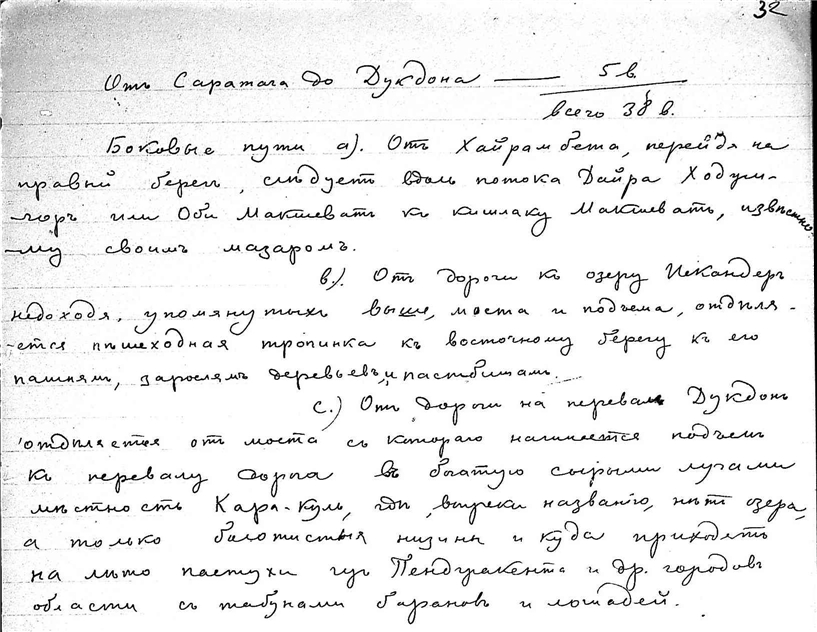 32
Отъ Саратага до Дукдона —— 5 в.
всего 38 в.
Боковые пути а). Отъ Хайрамбета, перейдя на
правый берегъ, слѣдуетъ вдоль потока Дайра Ходум-
-горъ или Оби Макшеватъ къ кишлаку Макшеватъ, извѣстно-
-му своимъ мазаромъ.
в.). Отъ дороги къ озеру Искандеръ
недоходя, упомянутыхъ выше, моста и подъема, отдѣля-
-ется пѣшеходная тропинка къ восточному берегу къ его
пашнямъ, зарослямъ деревьевъ, и пастбищамъ.
с.) Отъ дороги на перевалъ Дукдонъ
отдѣляется отъ моста съ котораго начинается подъемъ
къ перевалу дорога въ богатую сырыми лугами
мѣстность Кара-куль, гдѣ, вопреки названію, нѣтъ озера,
а только болотистыя низины и куда приходятъ
на лѣто пастухи изъ Пенджакента и др. городовъ
области съ табунами барановъ и лошадей.